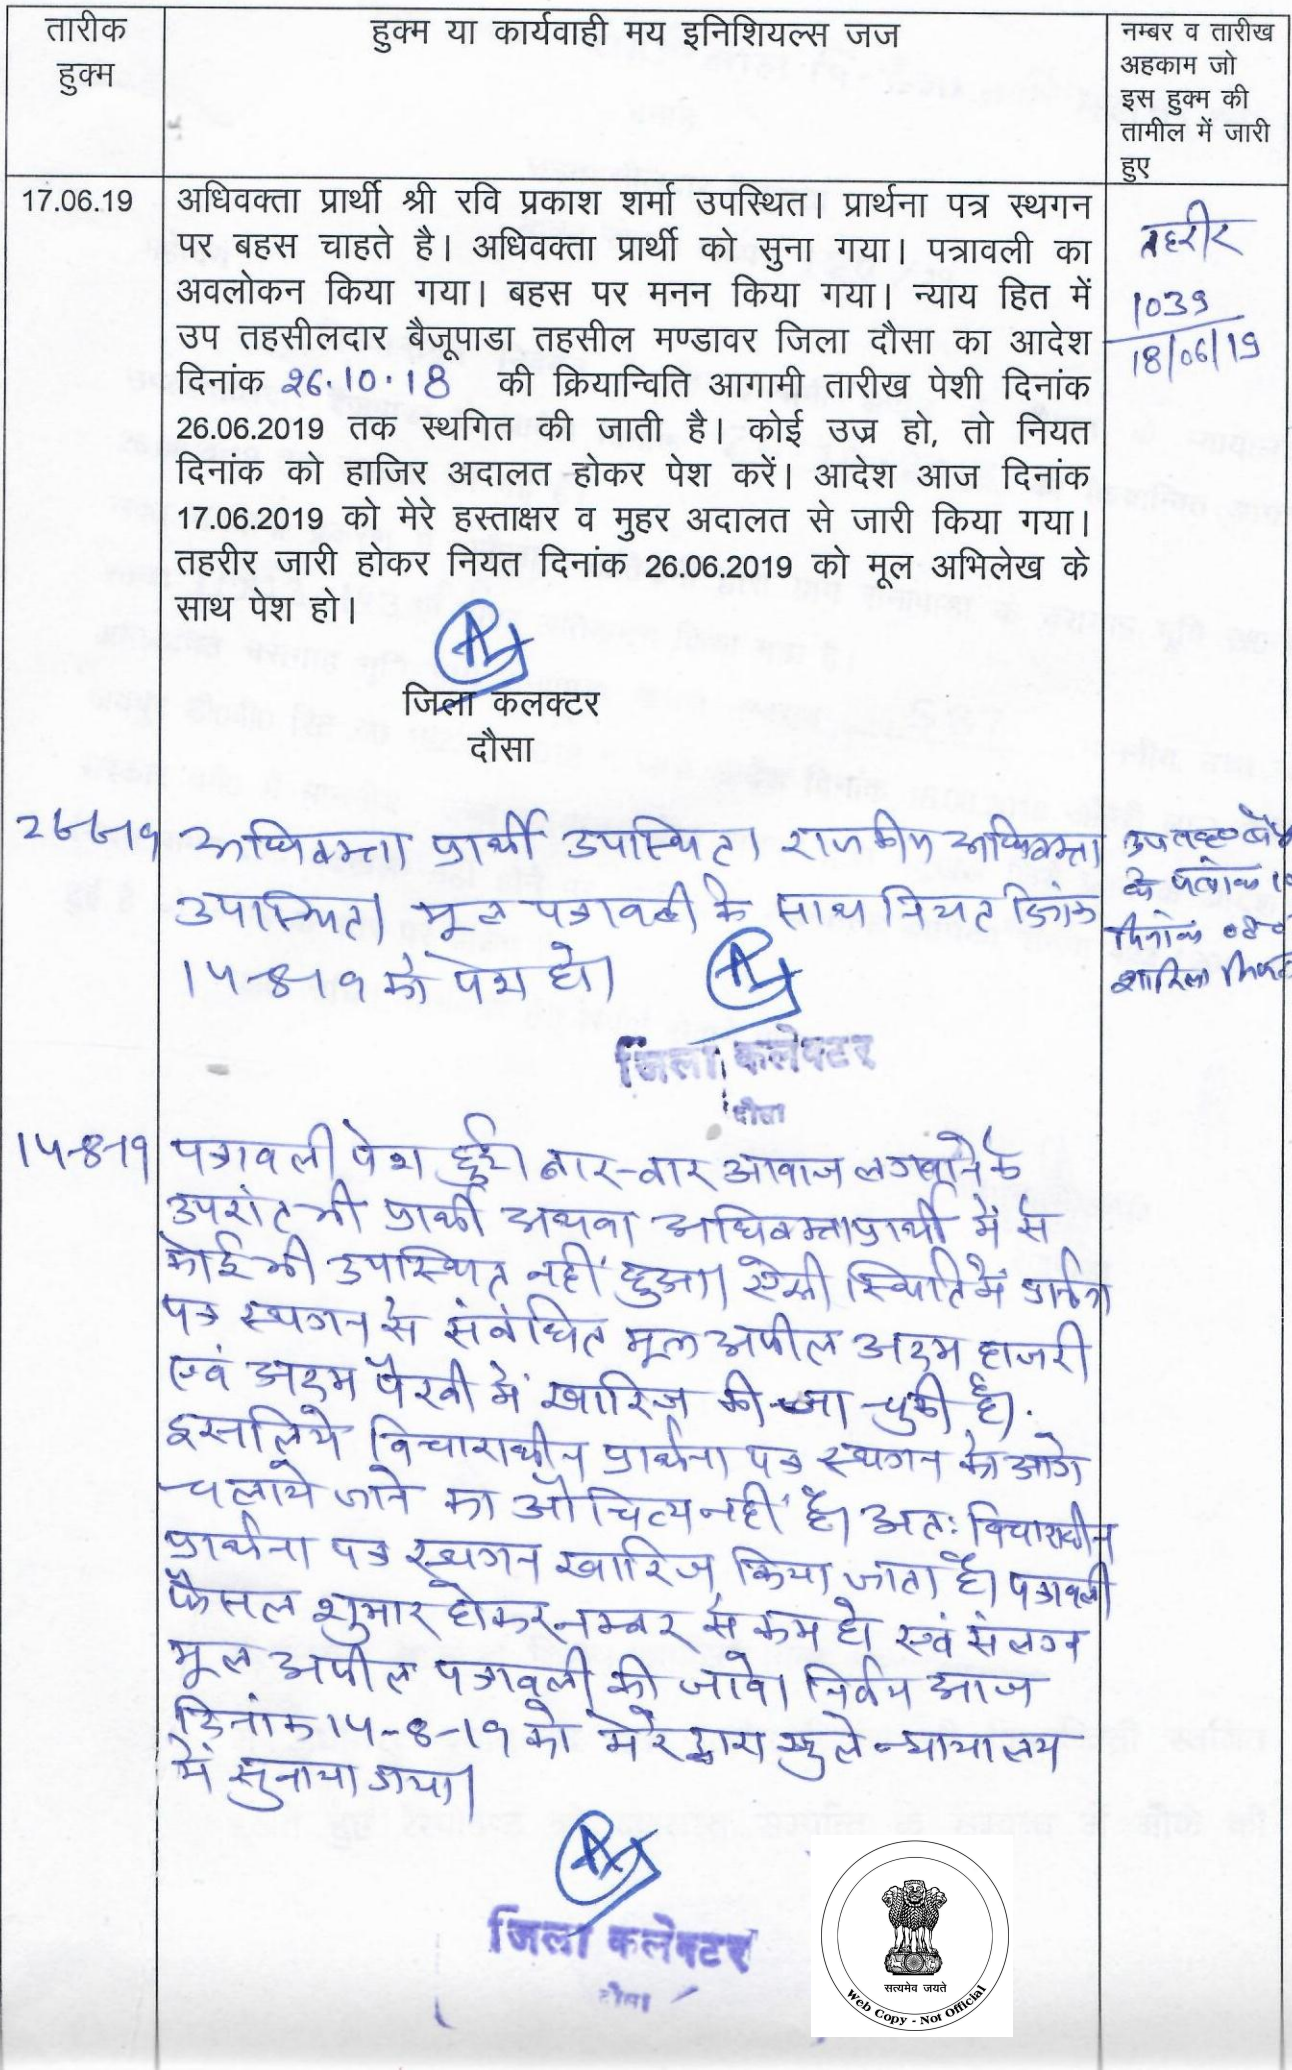 तारीक
हुक्म
हुक्म या कार्यवाही मय इनिशियल्स जज
नम्बर व तारीख
अहकाम जो
इस हुक्म की
तामील में जारी
हुए
17.06.19
अधिवक्ता प्रार्थी श्री रवि प्रकाश शर्मा उपस्थित। प्रार्थना पत्र स्थगन
पर बहस चाहते है। अधिवक्ता प्रार्थी को सुना गया। पत्रावली का
अवलोकन किया गया। बहस पर मनन किया गया। न्याय हित में
उप तहसीलदार बैजूपाडा तहसील मण्डावर जिला दौसा का आदेश
दिनांक 26.10.18 की क्रियान्विति आगामी तारीख पेशी दिनांक
26.06.2019 तक स्थगित की जाती है। कोई उज्र हो, तो नियत
दिनांक को हाजिर अदालत होकर पेश करें। आदेश आज दिनांक
17.06.2019 को मेरे हस्ताक्षर व मुहर अदालत से जारी किया गया।
तहरीर जारी होकर नियत दिनांक 26.06.2019 को मूल अभिलेख के
साथ पेश हो।
तहरीर
1039
18/06/19
जिला कलक्टर
दौसा
26-6-19
अधिवक्ता प्रार्थी उपस्थित। राजकीय अधिवक्ता
उपस्थित। मूल पत्रावली के साथ नियत दिनांक
14-8-19 को पेश हो।
जिला कलेक्टर
दौसा
14-8-19
पत्रावली पेश हुई। बार-बार आवाज लगवाने के
उपरांत भी प्रार्थी अथवा अधिवक्ता प्रार्थी में से
कोई भी उपस्थित नहीं हुआ। ऐसी स्थिति में प्रार्थना
पत्र स्थगन से संबंधित मूल अपील अदम हाजरी
एवं अदम पैरवी में खारिज की जा चुकी है।
इसलिये विचाराधीन प्रार्थना पत्र स्थगन को आगे
चलाये जाने का औचित्य नहीं है। अतः विचाराधीन
प्रार्थना पत्र स्थगन खारिज किया जाता है। पत्रावली
फैसल शुमार होकर नम्बर से कम हो एवं संलग्न
मूल अपील पत्रावली की जावे। निर्णय आज
दिनांक 14-8-19 को मेरे द्वारा खुले न्यायालय
में सुनाया गया।
जिला कलेक्टर
दौसा
सत्यमेव जयते
Web Copy - Not Official